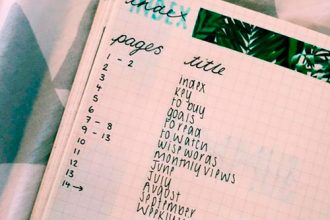 index
INDEX
pages title
1 - 2 index
3 key
4 to buy
5 goals
6 to read
7 - 8 to watch
9 - 13 wise words
10 monthly views
11 June
12 July
13 August
14 → September